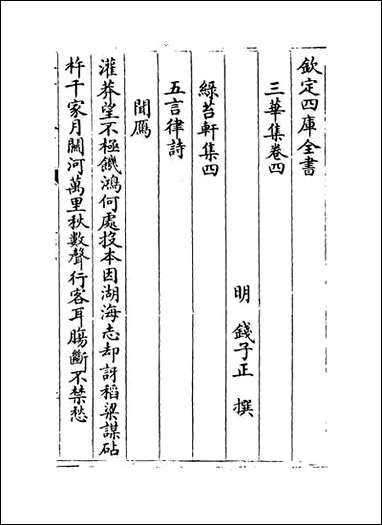 欽定四庫全書
三華集卷四
明 錢子正 撰
綠苔軒集四
五言律詩
聞鴈
灌莽望不極饑鴻何處投本因湖海志却訝稻粱謀砧
杵千家月關河萬里秋數聲行客耳腸斷不禁愁